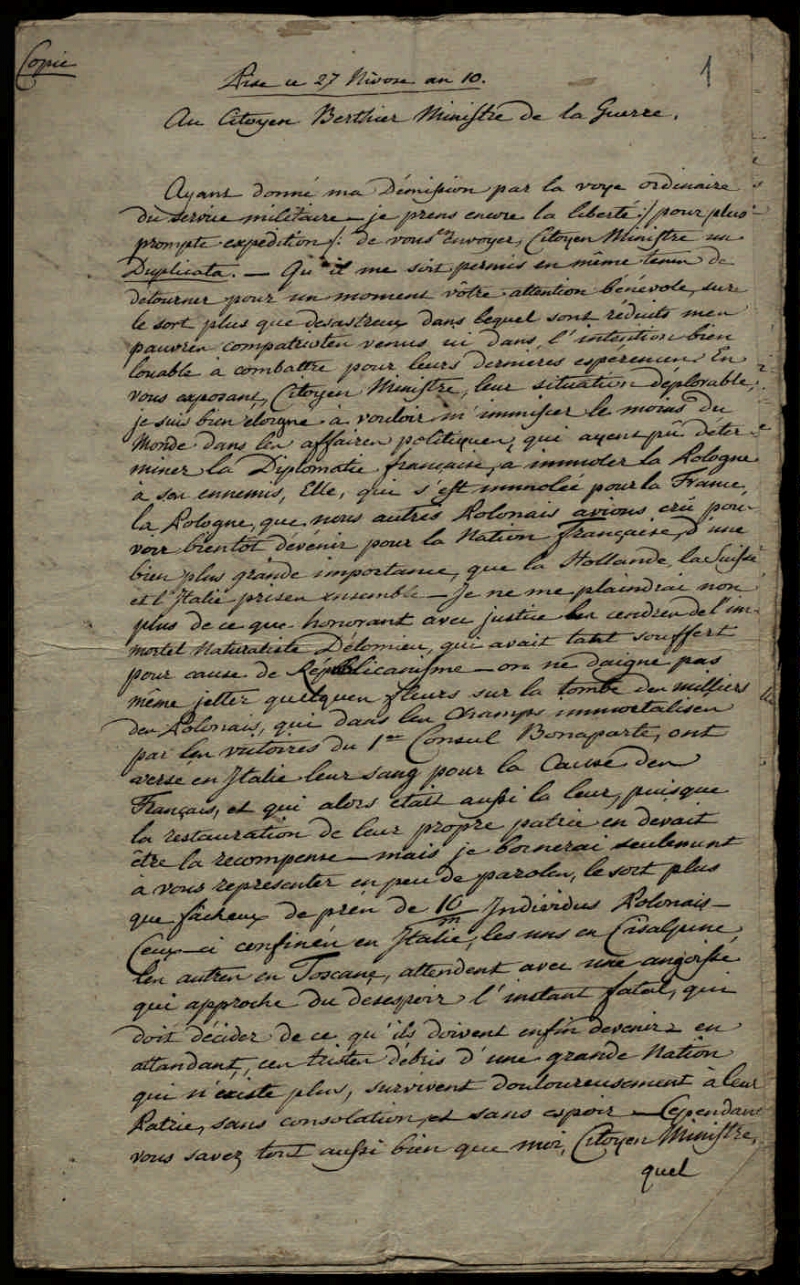 Copie
1
Pise ce 27 Nivose an 10.
Au Citoyen Berthier Ministre de la Guerre.
Ayant donné ma Démission par la voye ordinaire
du service militaire — je prens encore la liberté :/ pour plus
prompte expédition /: de vous envoyer, Citoyen Ministre un
Duplicata. — Qu'il me soit permis en même tems de
détourner pour un moment vôtre attention bénévole, sur
le sort plus que desastreux dans lequel sont réduits mes
pauvres compatriotes venus ici dans l'intention bien
louable à combattre pour leurs dernières esperences. En
vous exposant, Citoyen Ministre, leur situation déplorable,
je suis bien éloigné à vouloir m'immiscer le moins du
Monde dans les affaires politiques, qui ayent pû déter
miner la Diplomatie française, à immoler la Pologne
à ses ennemis, Elle, qui s'est immolée pour la France,
la Pologne, que nous autres Polonais avions crû pou-
voir bientôt dévenir pour la Nation française, d'une
bien plus grande importance, que la Hollande, la Suisse
et l'Italie prises ensemble — Je ne me plaindrai non
plus de ce que honorant avec justice les cendres de l'im-
mortel Naturaliste Délomieu, qui avait tant souffert
pour cause de Républicanisme — on ne daigne pas
même jetter quelques fleurs sur la tombe des milliers
des Polonais, qui dans les Champs immortalisés
par les victoires du 1er Consul Bonaparte, ont
versé en Italie leur sang pour la Cause des
Français, et qui alors était aussi la leur, puisque
la restauration de leur propre patrie en devait
être la recompense — mais je bornerai seulement
à vous représenter en peu de paroles, le sort plus
que fâcheux de près de 10/m Individus Polonais —
Ceux-ci confinés en Italie, les uns en Cisalpine,
les autres en Toscane, attendent avec une angoisse
qui approche du desespoir l'instant fatal, qui
doit décider de ce qu'ils doivent enfin devenir — en
attandant, ces tristes débris d'une grande Nation
qui n'existe plus, survivent douloureusement à leur
Patrie, sans consolation, et sans espoir — Cependant
vous savez tout aussi bien que moi, Citoyen Ministre,
quel